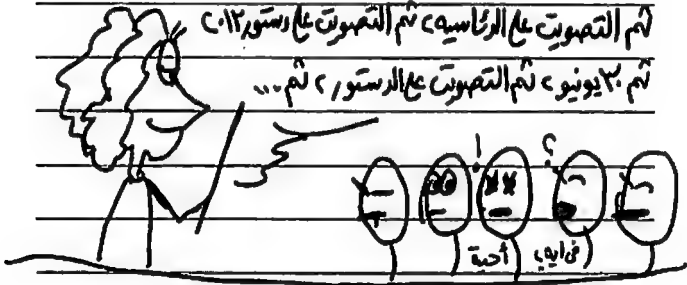 ثم التصويت على الرئاسيه، ثم التصويت على دستور ٢٠١٢،
ثم ٣٠ يونيو، ثم التصويت على الدستور، ثم ...
! ؟
أحية فى ايه؟